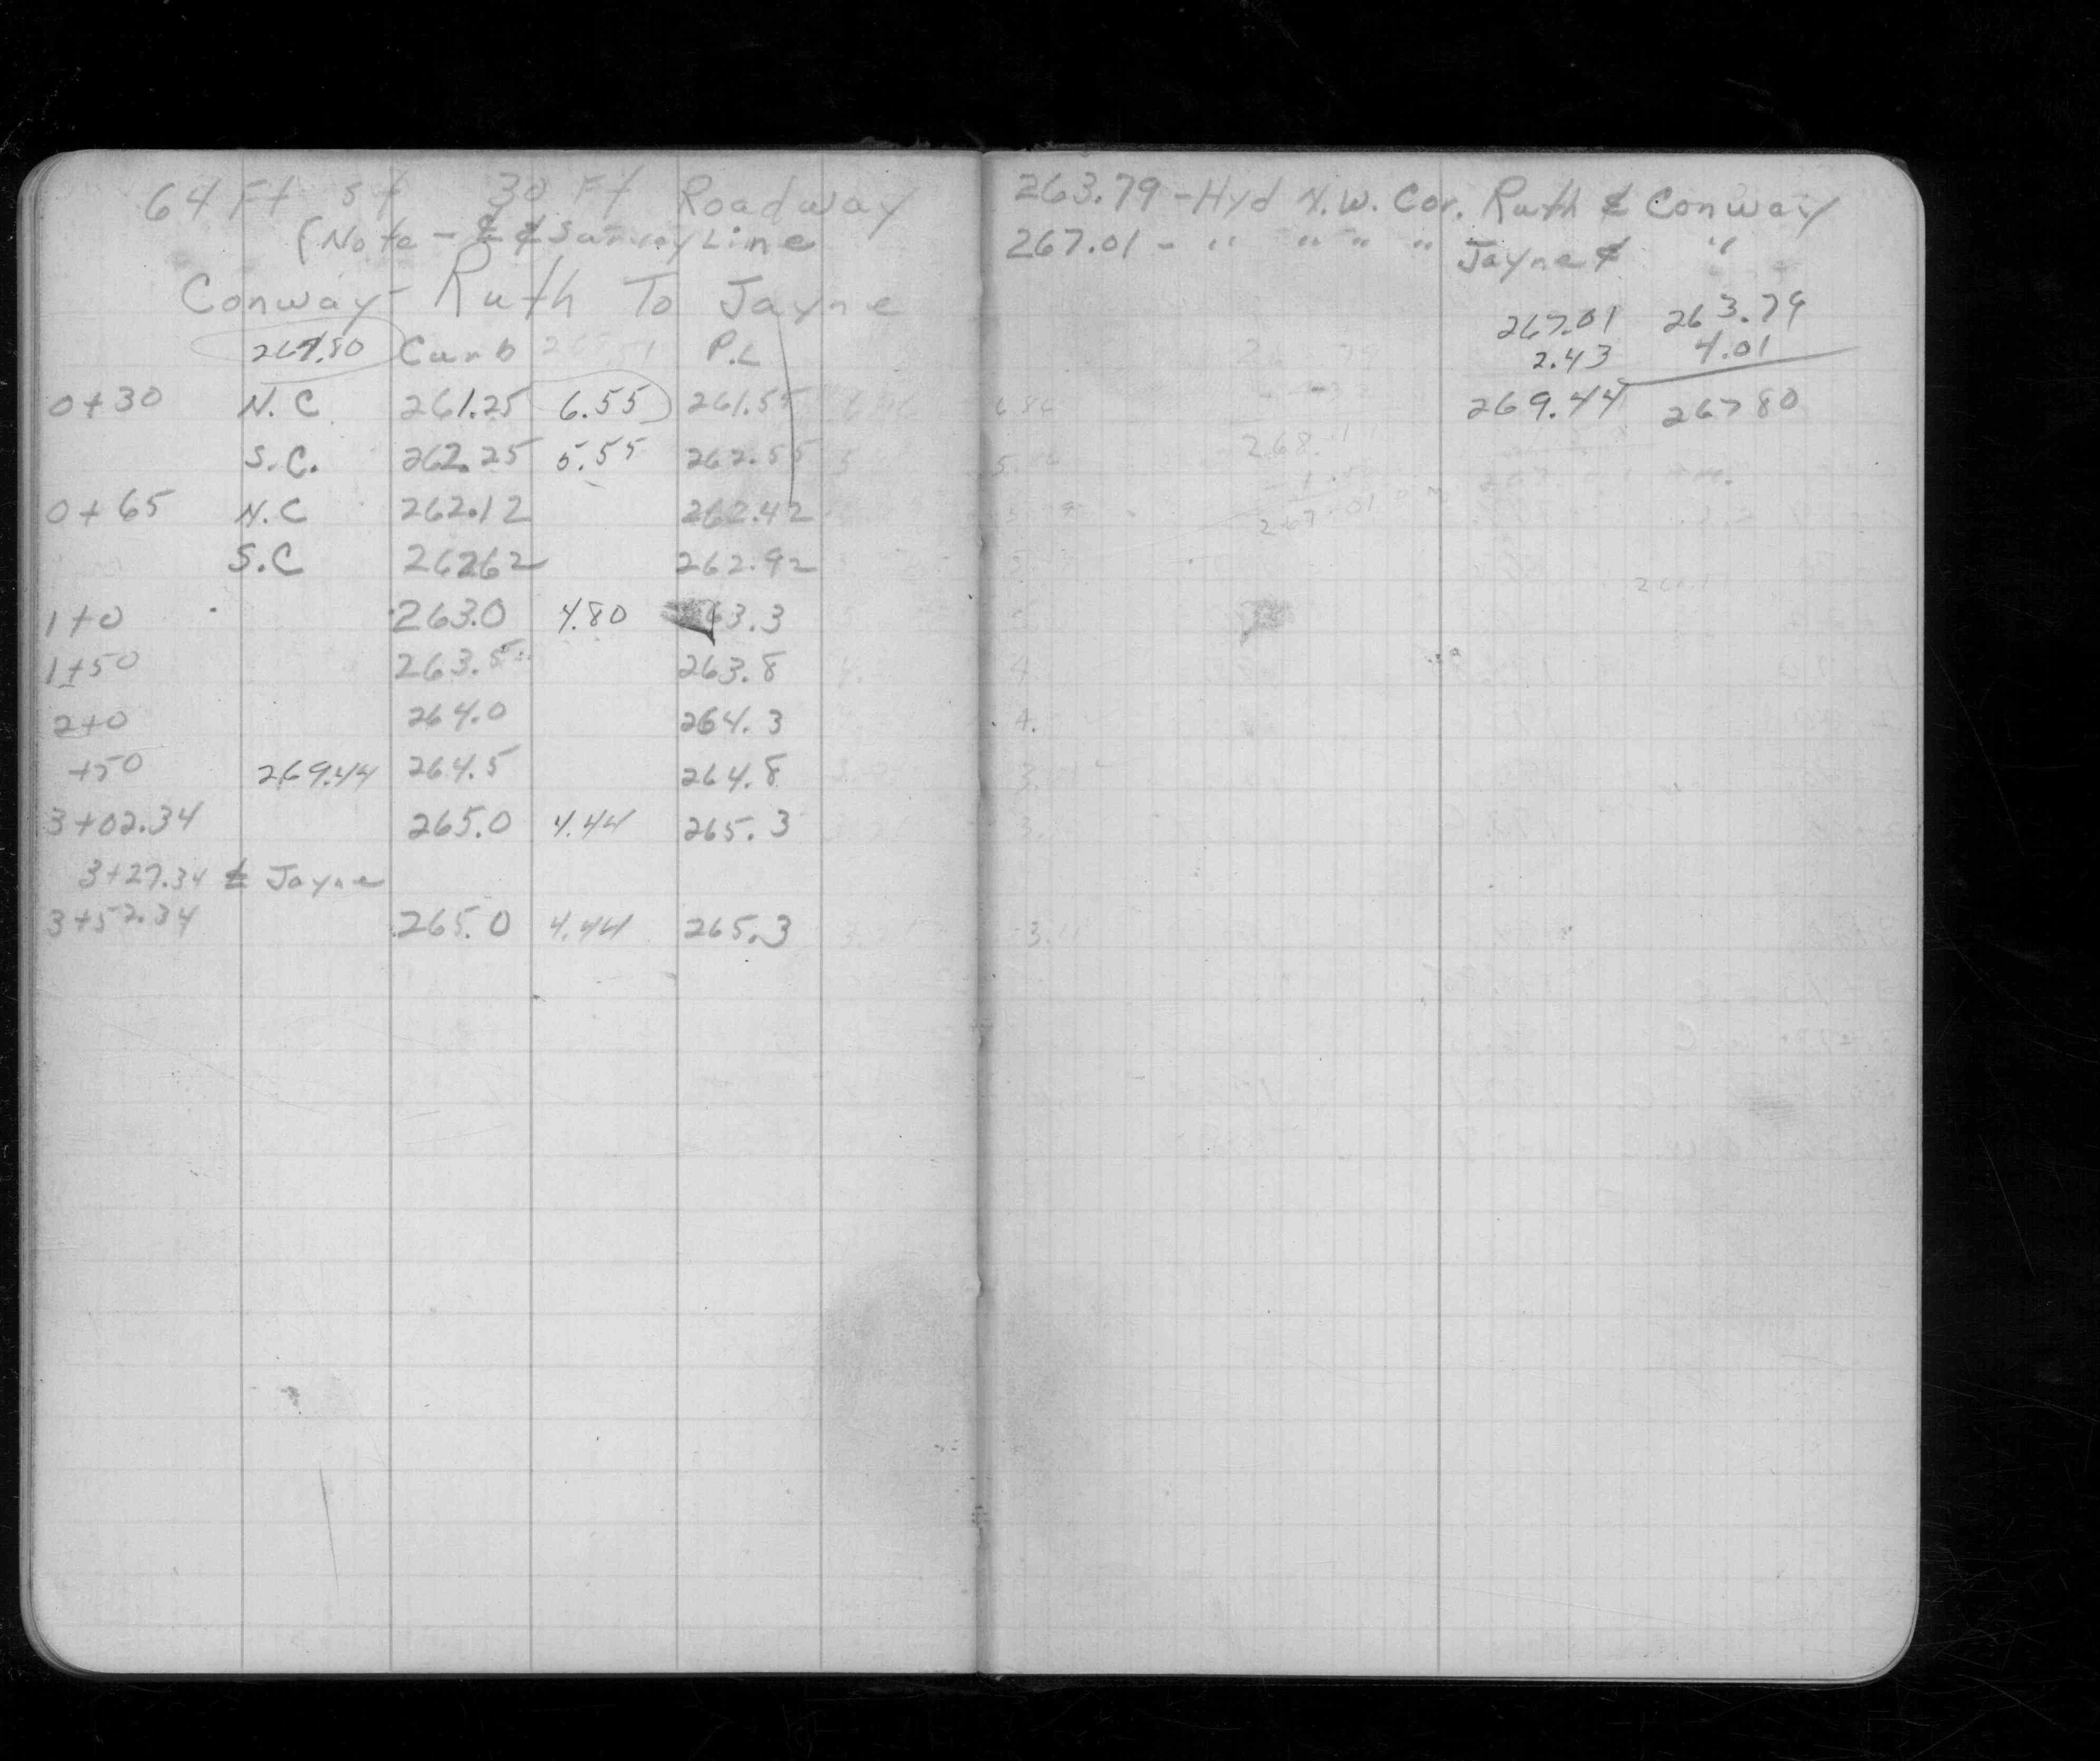 64 Ft St 30 Ft Roadway
(Note - ℄ & Survey Line
Conway - Ruth To Jayne
267.80 Curb P.L
0+30 N.C 261.25 6.55 261.55
S.C. 262.25 5.55 262.55
0+65 N.C 262.12 262.42
S.C 26262 262.92
1+0 263.0 4.80 263.3
1+50 263.5 263.8
2+0 264.0 264.3
+50 269.44 264.5 264.8
3+02.34 265.0 4.44 265.3
3+27.34 ℄ Jayne
3+52.34 265.0 4.44 265.3
263.79 - Hyd N.W. Cor. Ruth & Conway
267.01 - " " " " Jayne & "
267.01 263.79
2.43 4.01
269.44 26780
268.
267.01